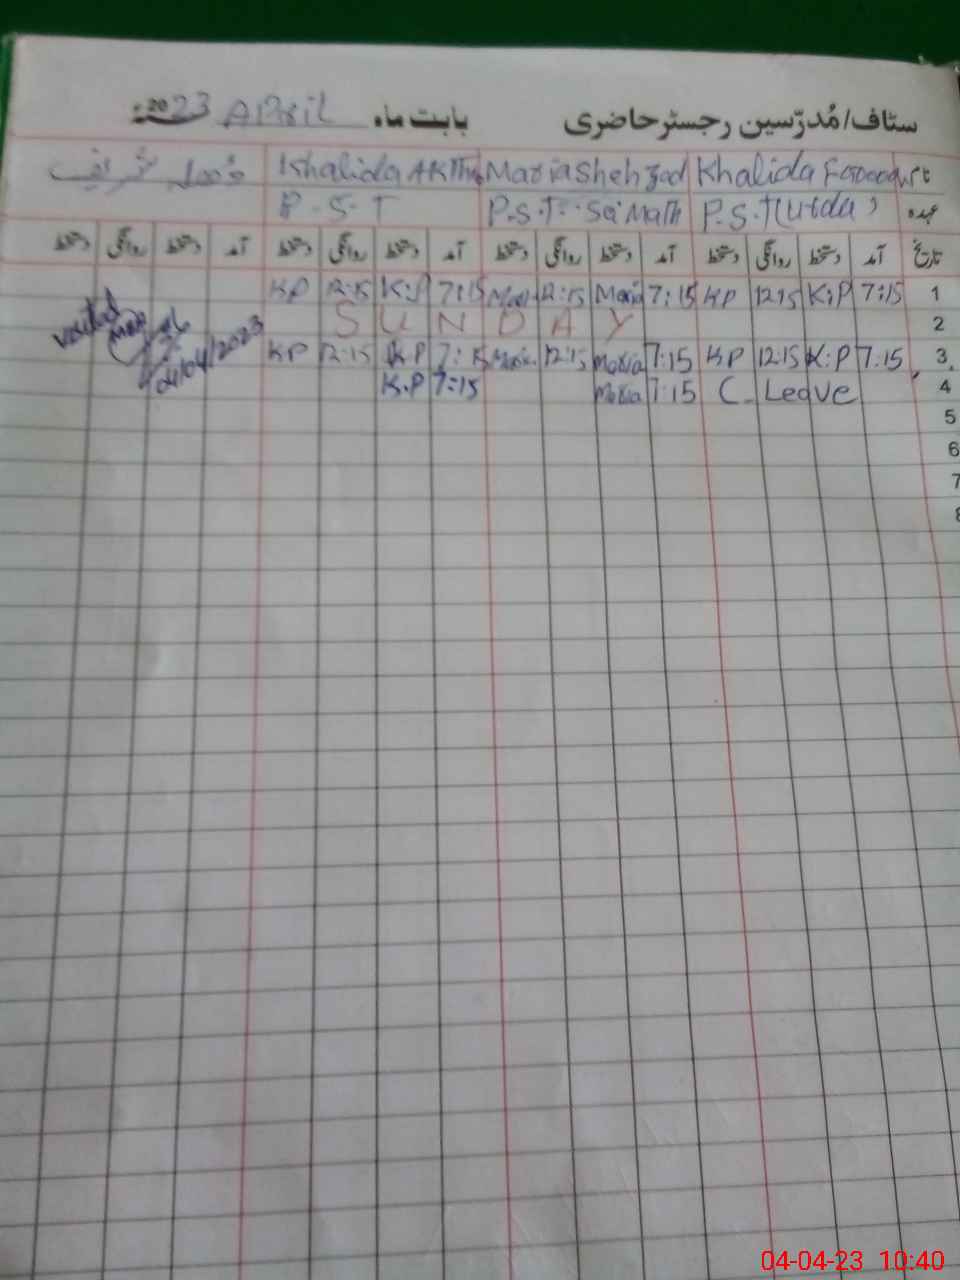 سٹاف/مُدرّسین رجسٹر حاضری بابت ماہ April 2023ء
نام Khalida Farooq Maria Shehzad Khalida Akhtar
عہدہ P.S.T(Urdu) P.S.T. Sci Math P.S.T
تاریخ آمد دستخط روانگی دستخط آمد دستخط روانگی دستخط آمد دستخط روانگی دستخط آمد دستخط روانگی دستخط
1 7:15 K:P 12:15 KP 7:15 Maria 12:15 Maria 7:15 K:P 12:15 KP
2 SUNDAY
3 7:15 K:P 12:15 KP 7:15 Maria 12:15 Maria 7:15 K.P 12:15 KP
4 C_ Leave 7:15 Maria 7:15 K.P
5
6
7
8
Visited
04/04/2023
04-04-23 10:40